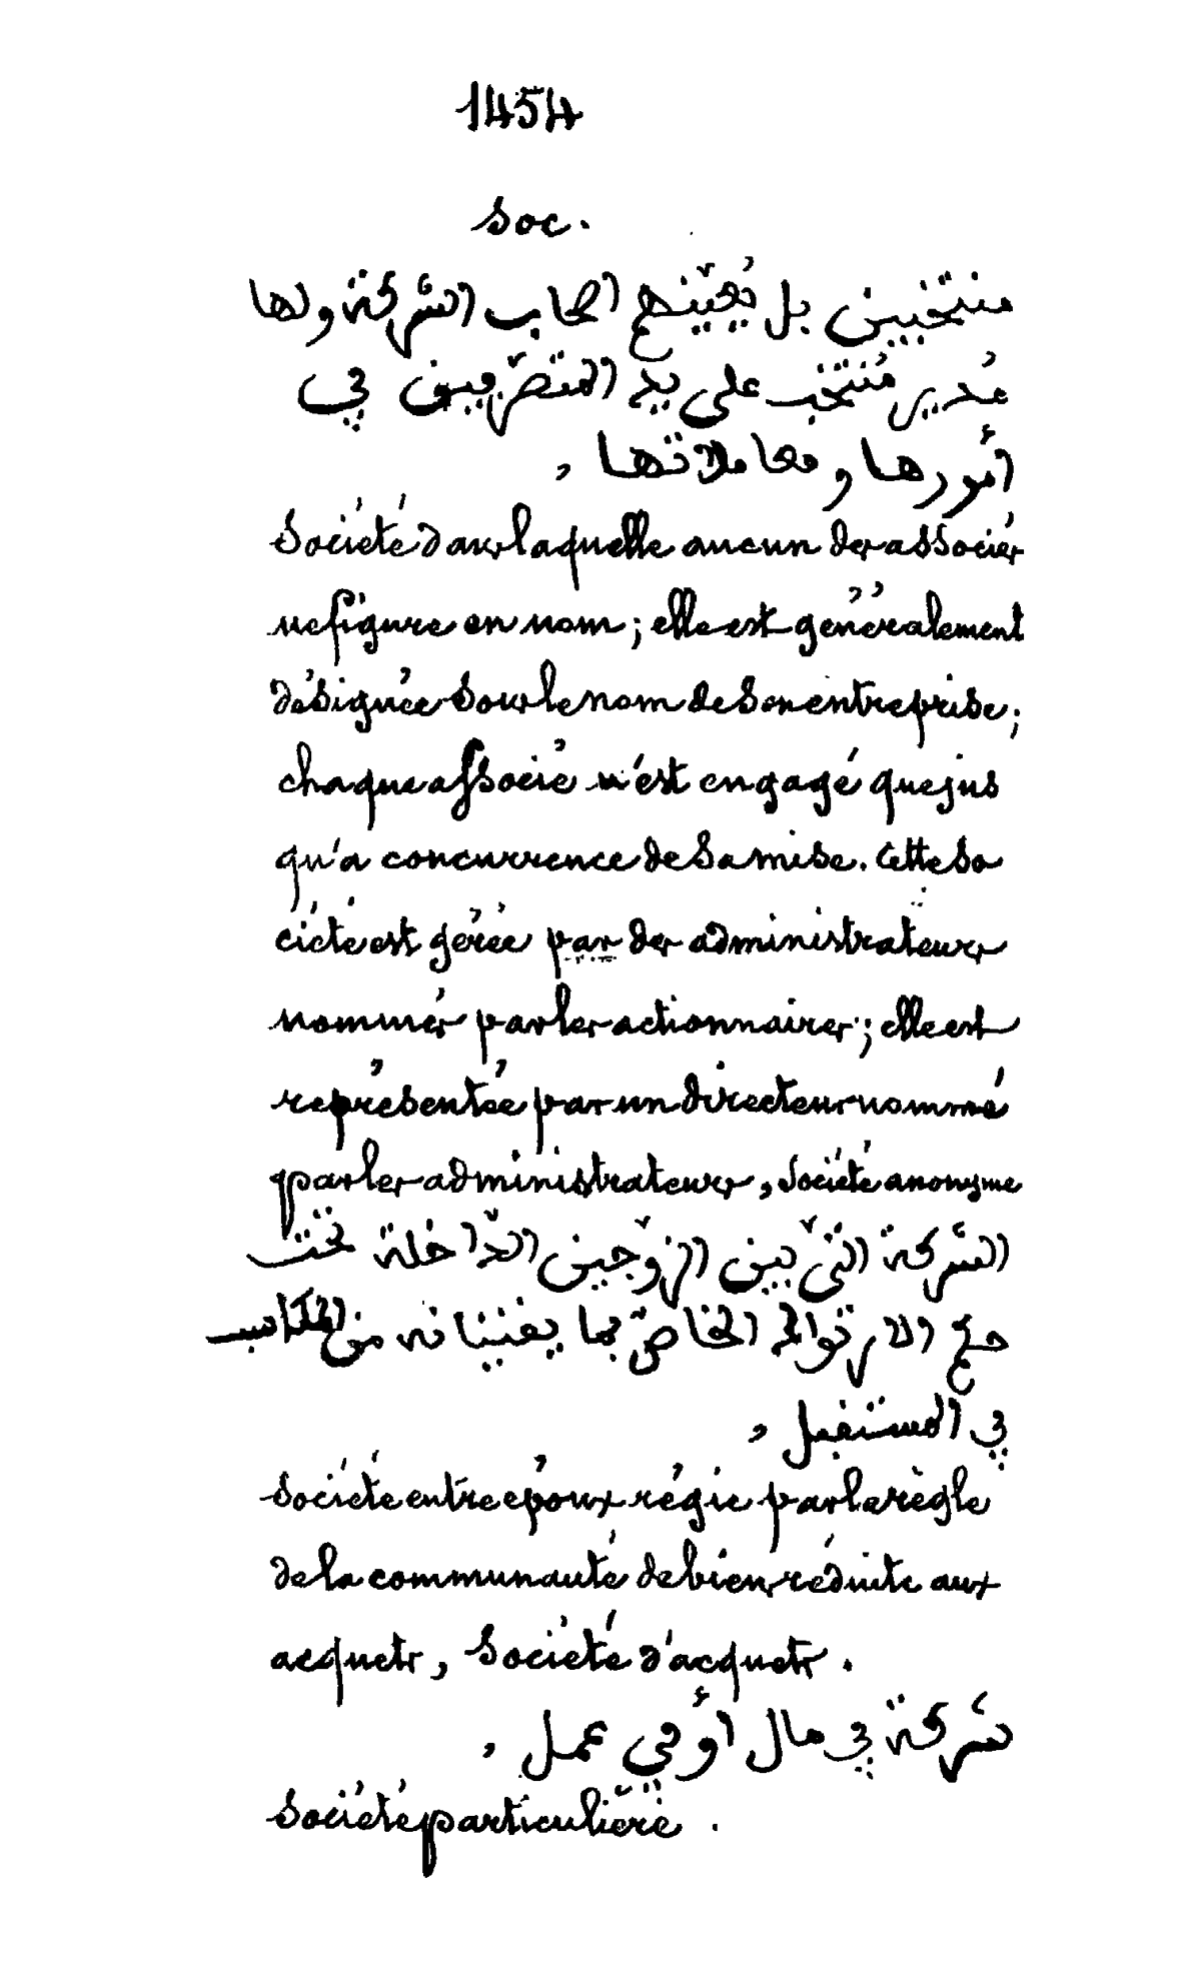 1454
soc.
منتخبين بل يُعيّنهم اصحاب الشّركة ولها
مُدير مُنتخب على يد المتصرّفين في
أمورها ومعاملاتها ,
Société dans laquelle aucun des associés
ne figure en nom ; elle est généralement
désignée sous le nom de son entreprise ;
chaque associé n'est engagé que jus
qu'a concurrence de sa mise . Cette so
ciété est gérée par des administrateurs
nommés par les actionnaires ; elle est
représentée par un directeur nommé
par les administrateurs , Société anonyme
الشّركة الّتي بين الزّوجين الدّاخلة تحت
حكم الخاصّ بما يقتنيانه من المكاسب
في المستقبل ,
Société entre époux régie par la règle
de la communauté de biens réduite aux
acquets , Société d'acquets .
شركة في مال أو في عمل ,
Société particulière .